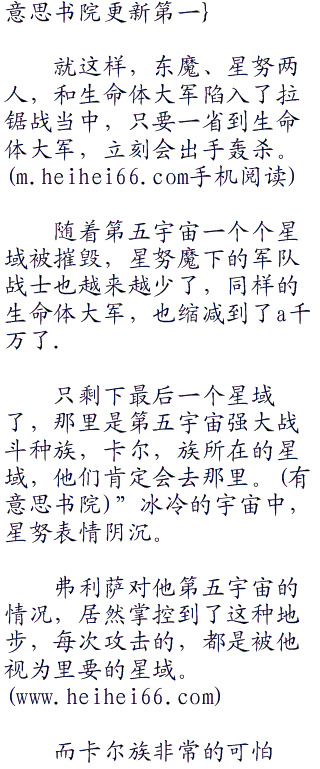 意思书院更新第一}
就这样，东魔、星努两
人，和生命体大军陷入了拉
锯战当中，只要一省到生命
体大军，立刻会出手轰杀。
(m.heihei66.com手机阅读)
随着第五宇宙一个个星
域被摧毁，星努魔下的军队
战士也越来越少了，同样的
生命体大军，也缩减到了a千
万了.
只剩下最后一个星域
了，那里是第五宇宙强大战
斗种族，卡尔，族所在的星
域，他们肯定会去那里。(有
意思书院)”冰冷的宇宙中，
星努表情阴沉。
弗利萨对他第五宇宙的
情况，居然掌控到了这种地
步，每次攻击的，都是被他
视为里要的星域。
(www.heihei66.com)
而卡尔族非常的可怕